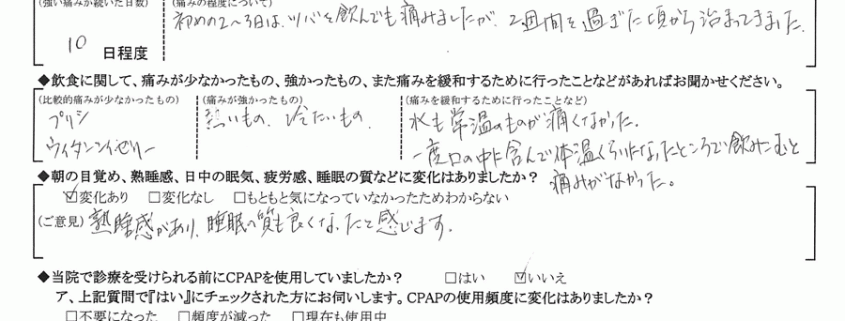 (強い痛みが続いた日数)
(痛みの程度について)
10 日程度
初めの2~3日は、ツバを飲んでも痛みましたが、2週間を過ぎた頃から治まってきました。
◆飲食に関して、痛みが少なかったもの、強かったもの、また痛みを緩和するために行ったことなどがあればお聞かせください。
(比較的痛みが少なかったもの)
プリン
ウィダーインゼリー
(痛みが強かったもの)
熱いもの、冷たいもの、
(痛みを緩和するために行ったことなど)
水も常温のものが痛くなかった。
一度口の中に含んで体温くらいになったところで飲み込むと
痛みがなかった。
◆朝の目覚め、熟睡感、日中の眠気、疲労感、睡眠の質などに変化はありましたか?
☑変化あり □変化なし □もともと気になっていなかったためわからない
(ご意見) 熟睡感があり、睡眠の質も良くなったと感じます。
◆当院で診療を受けられる前にCPAPを使用していましたか? □はい ☑いいえ
ア、上記質問で『はい』にチェックされた方にお伺いします。CPAPの使用頻度に変化はありましたか?
□不要になった □頻度が減った □現在も使用中